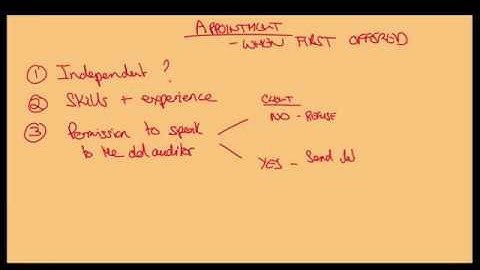 APPOINTMENT
- WHEN FIRST OFFERED
① Independent ?
② Skills + experience
③ Permission to speak
to the old auditor
CLIENT
NO - REFUSE
YES - Send